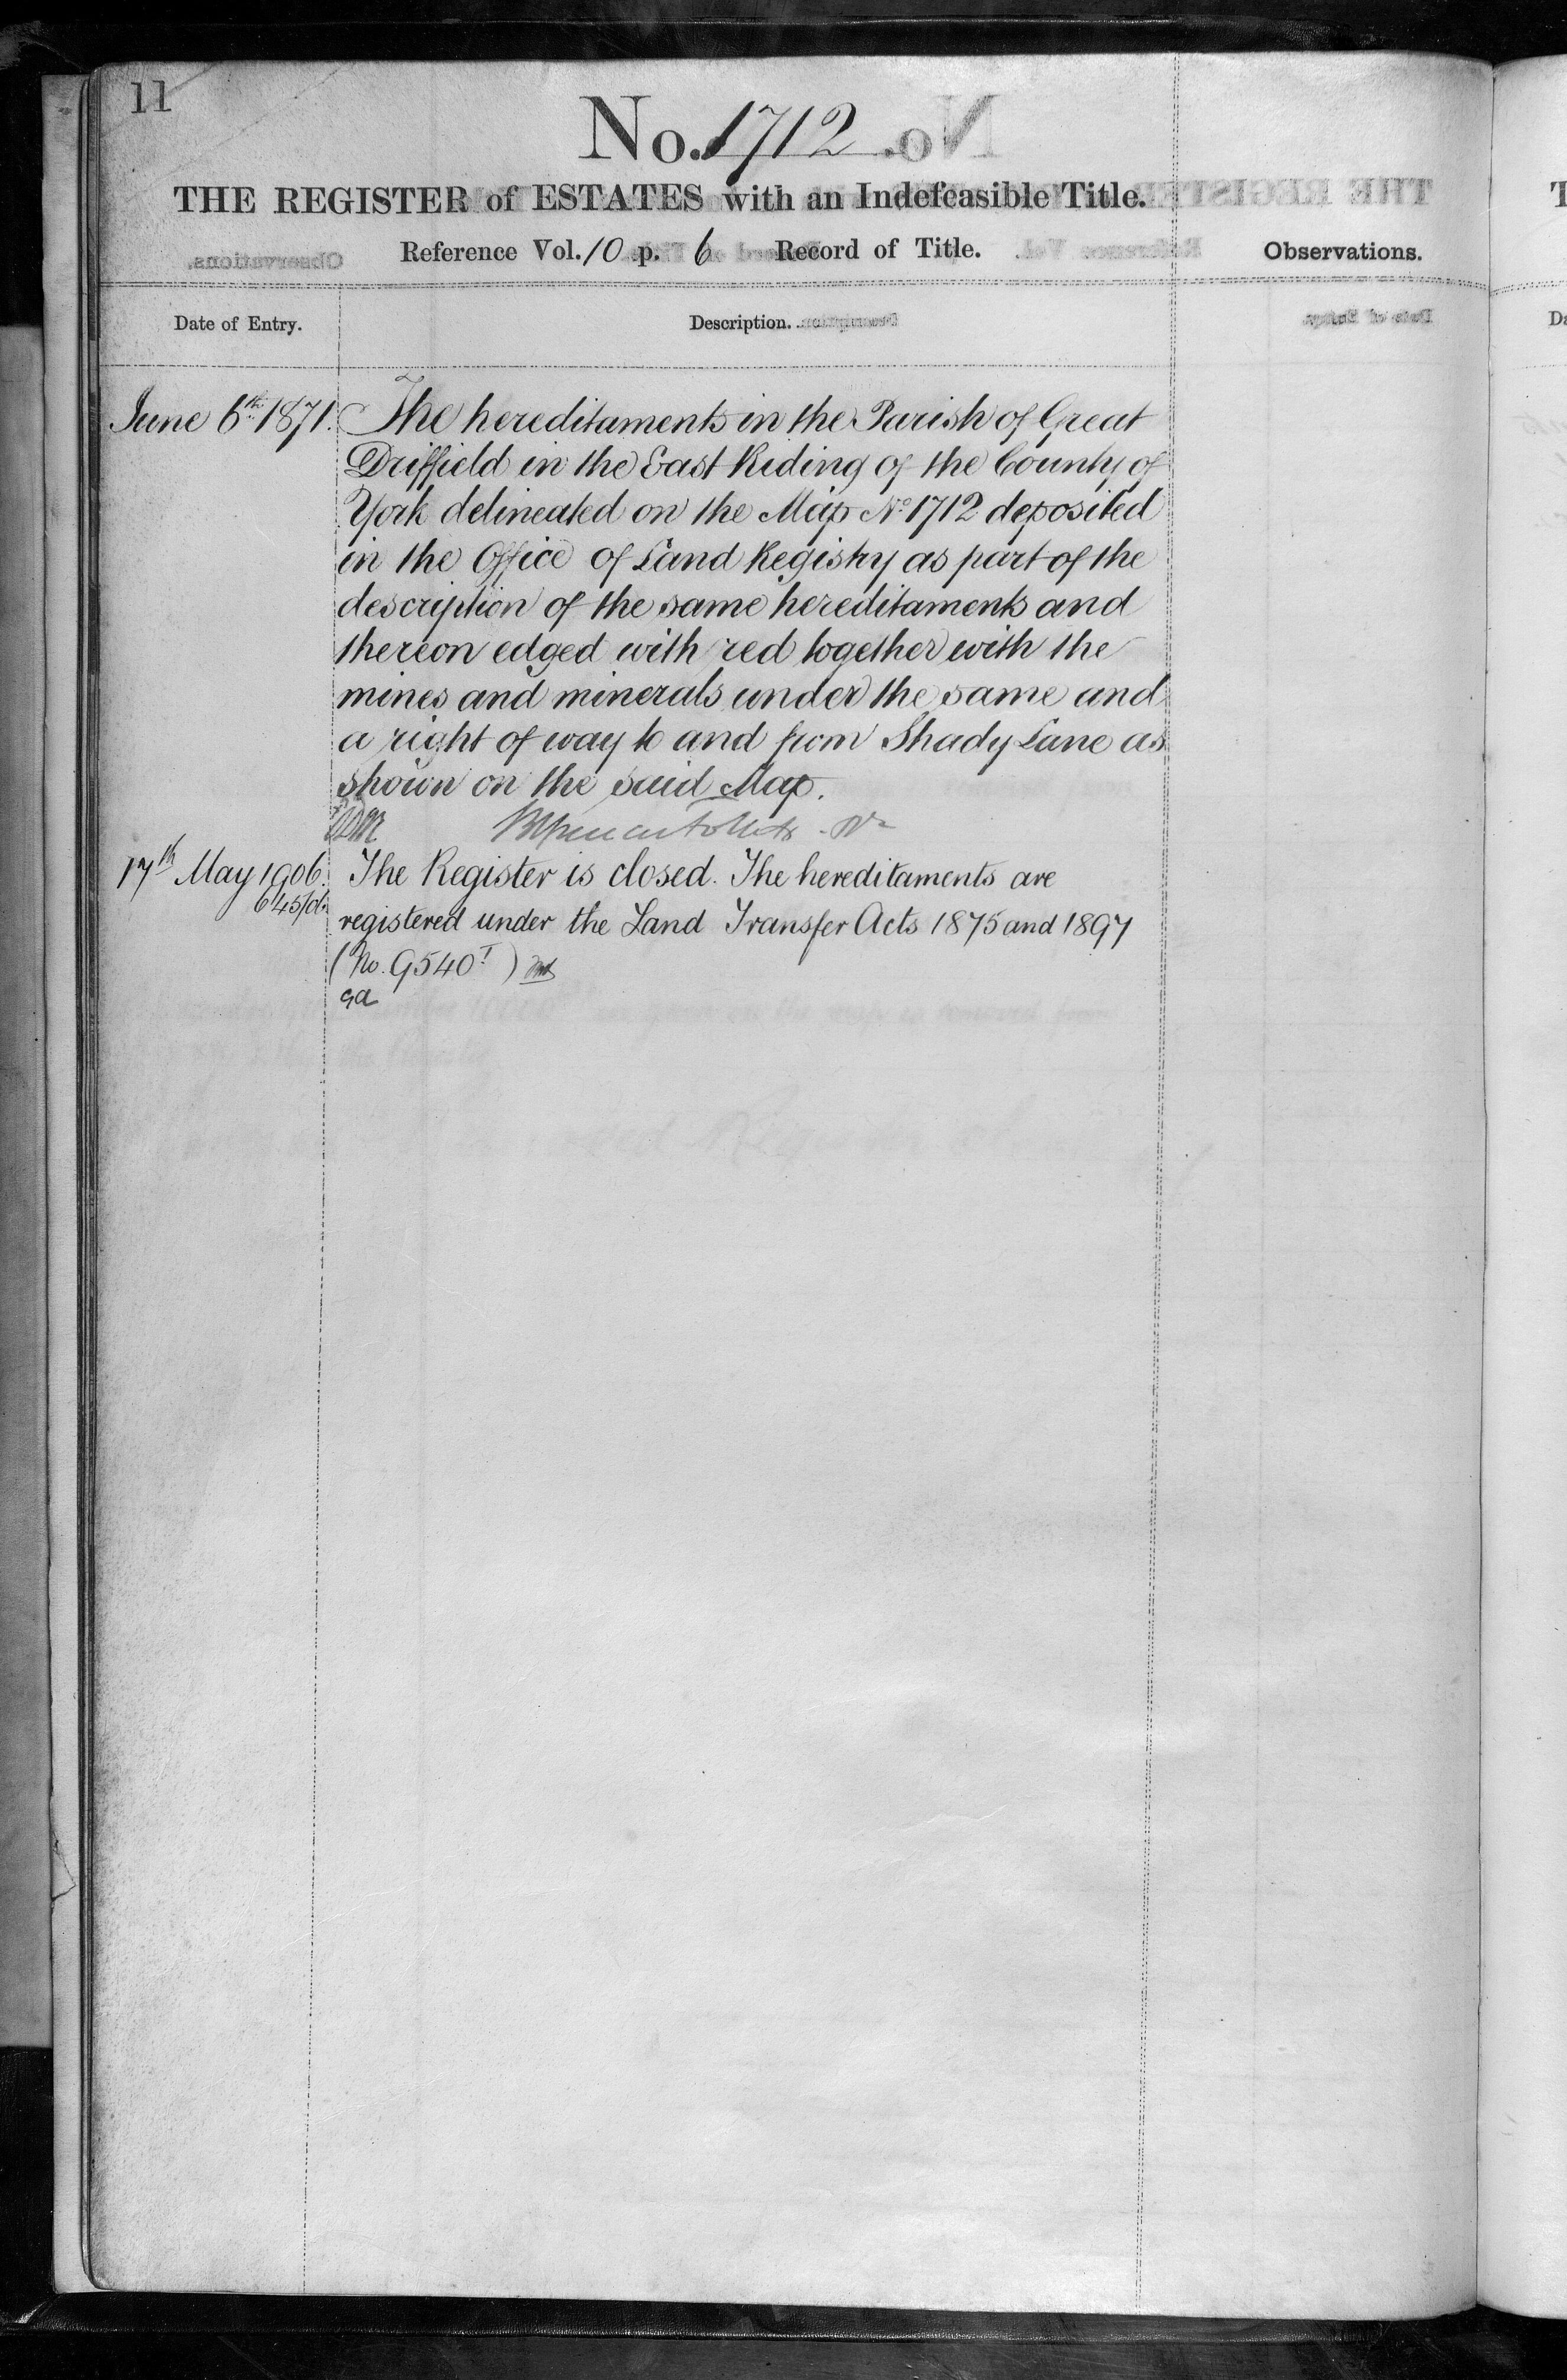 11
No. 1712
THE REGISTER of ESTATES with an Indefeasible Title.
Reference Vol. 10 p. 6 Record of Title.
Observations.
Date of Entry.
Description.
June 6th 1871. The hereditaments in the Parish of Great
Driffield in the East Riding of the County of
York delineated on the Map No. 1712 deposited
in the Office of Land Registry as part of the
description of the same hereditaments and
thereon edged with red together with the
mines and minerals under the same and
a right of way to and from Shady Lane as
shown on the said Map.
17th May 1906. The Register is closed. The hereditaments are
registered under the Land Transfer Acts 1875 and 1897
(No. 9540 T)